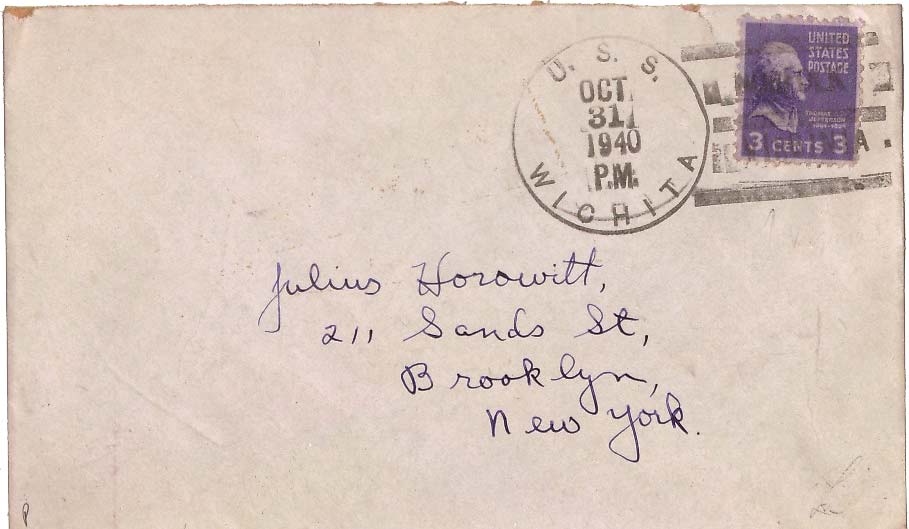 U. S. S.
OCT.
31
1940
P.M.
WICHITA
UNITED
STATES
POSTAGE
THOMAS
JEFFERSON
3 CENTS 3
Julius Horowitt,
211 Sands St,
Brooklyn,
New York.
P